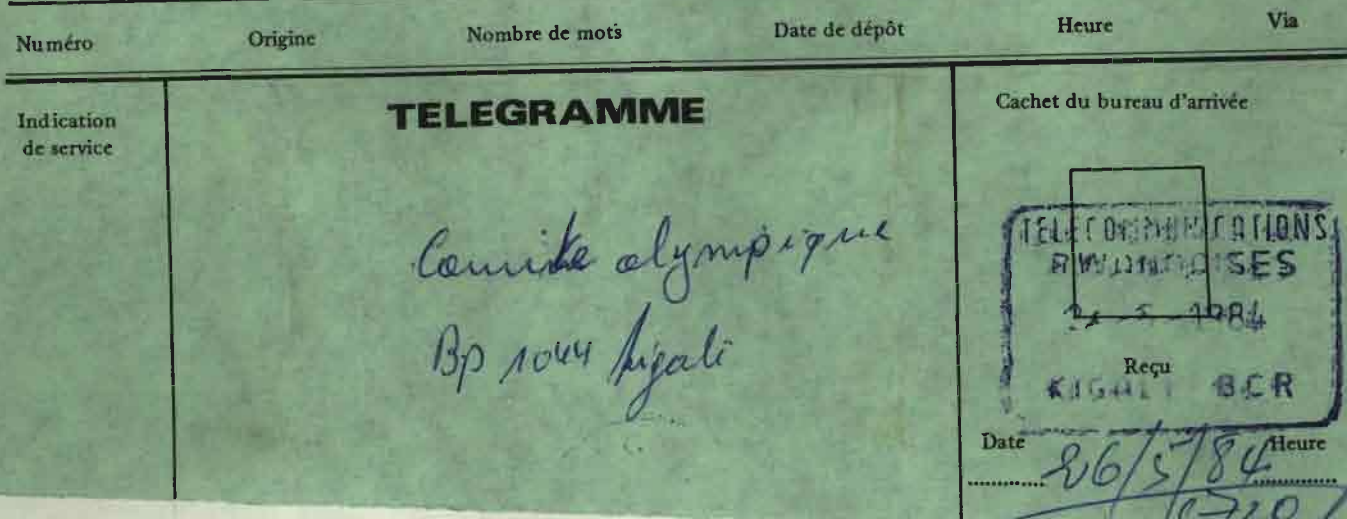 Numéro Origine Nombre de mots Date de dépôt Heure Via
Indication
de service
TELEGRAMME
Comite olympique
Bp 1044 Kigali
Cachet du bureau d'arrivée
TELECOMMUNICATIONS
RWANDAISES
5 1984
Reçu
KIGALI BCR
Date 26/5/84 Heure